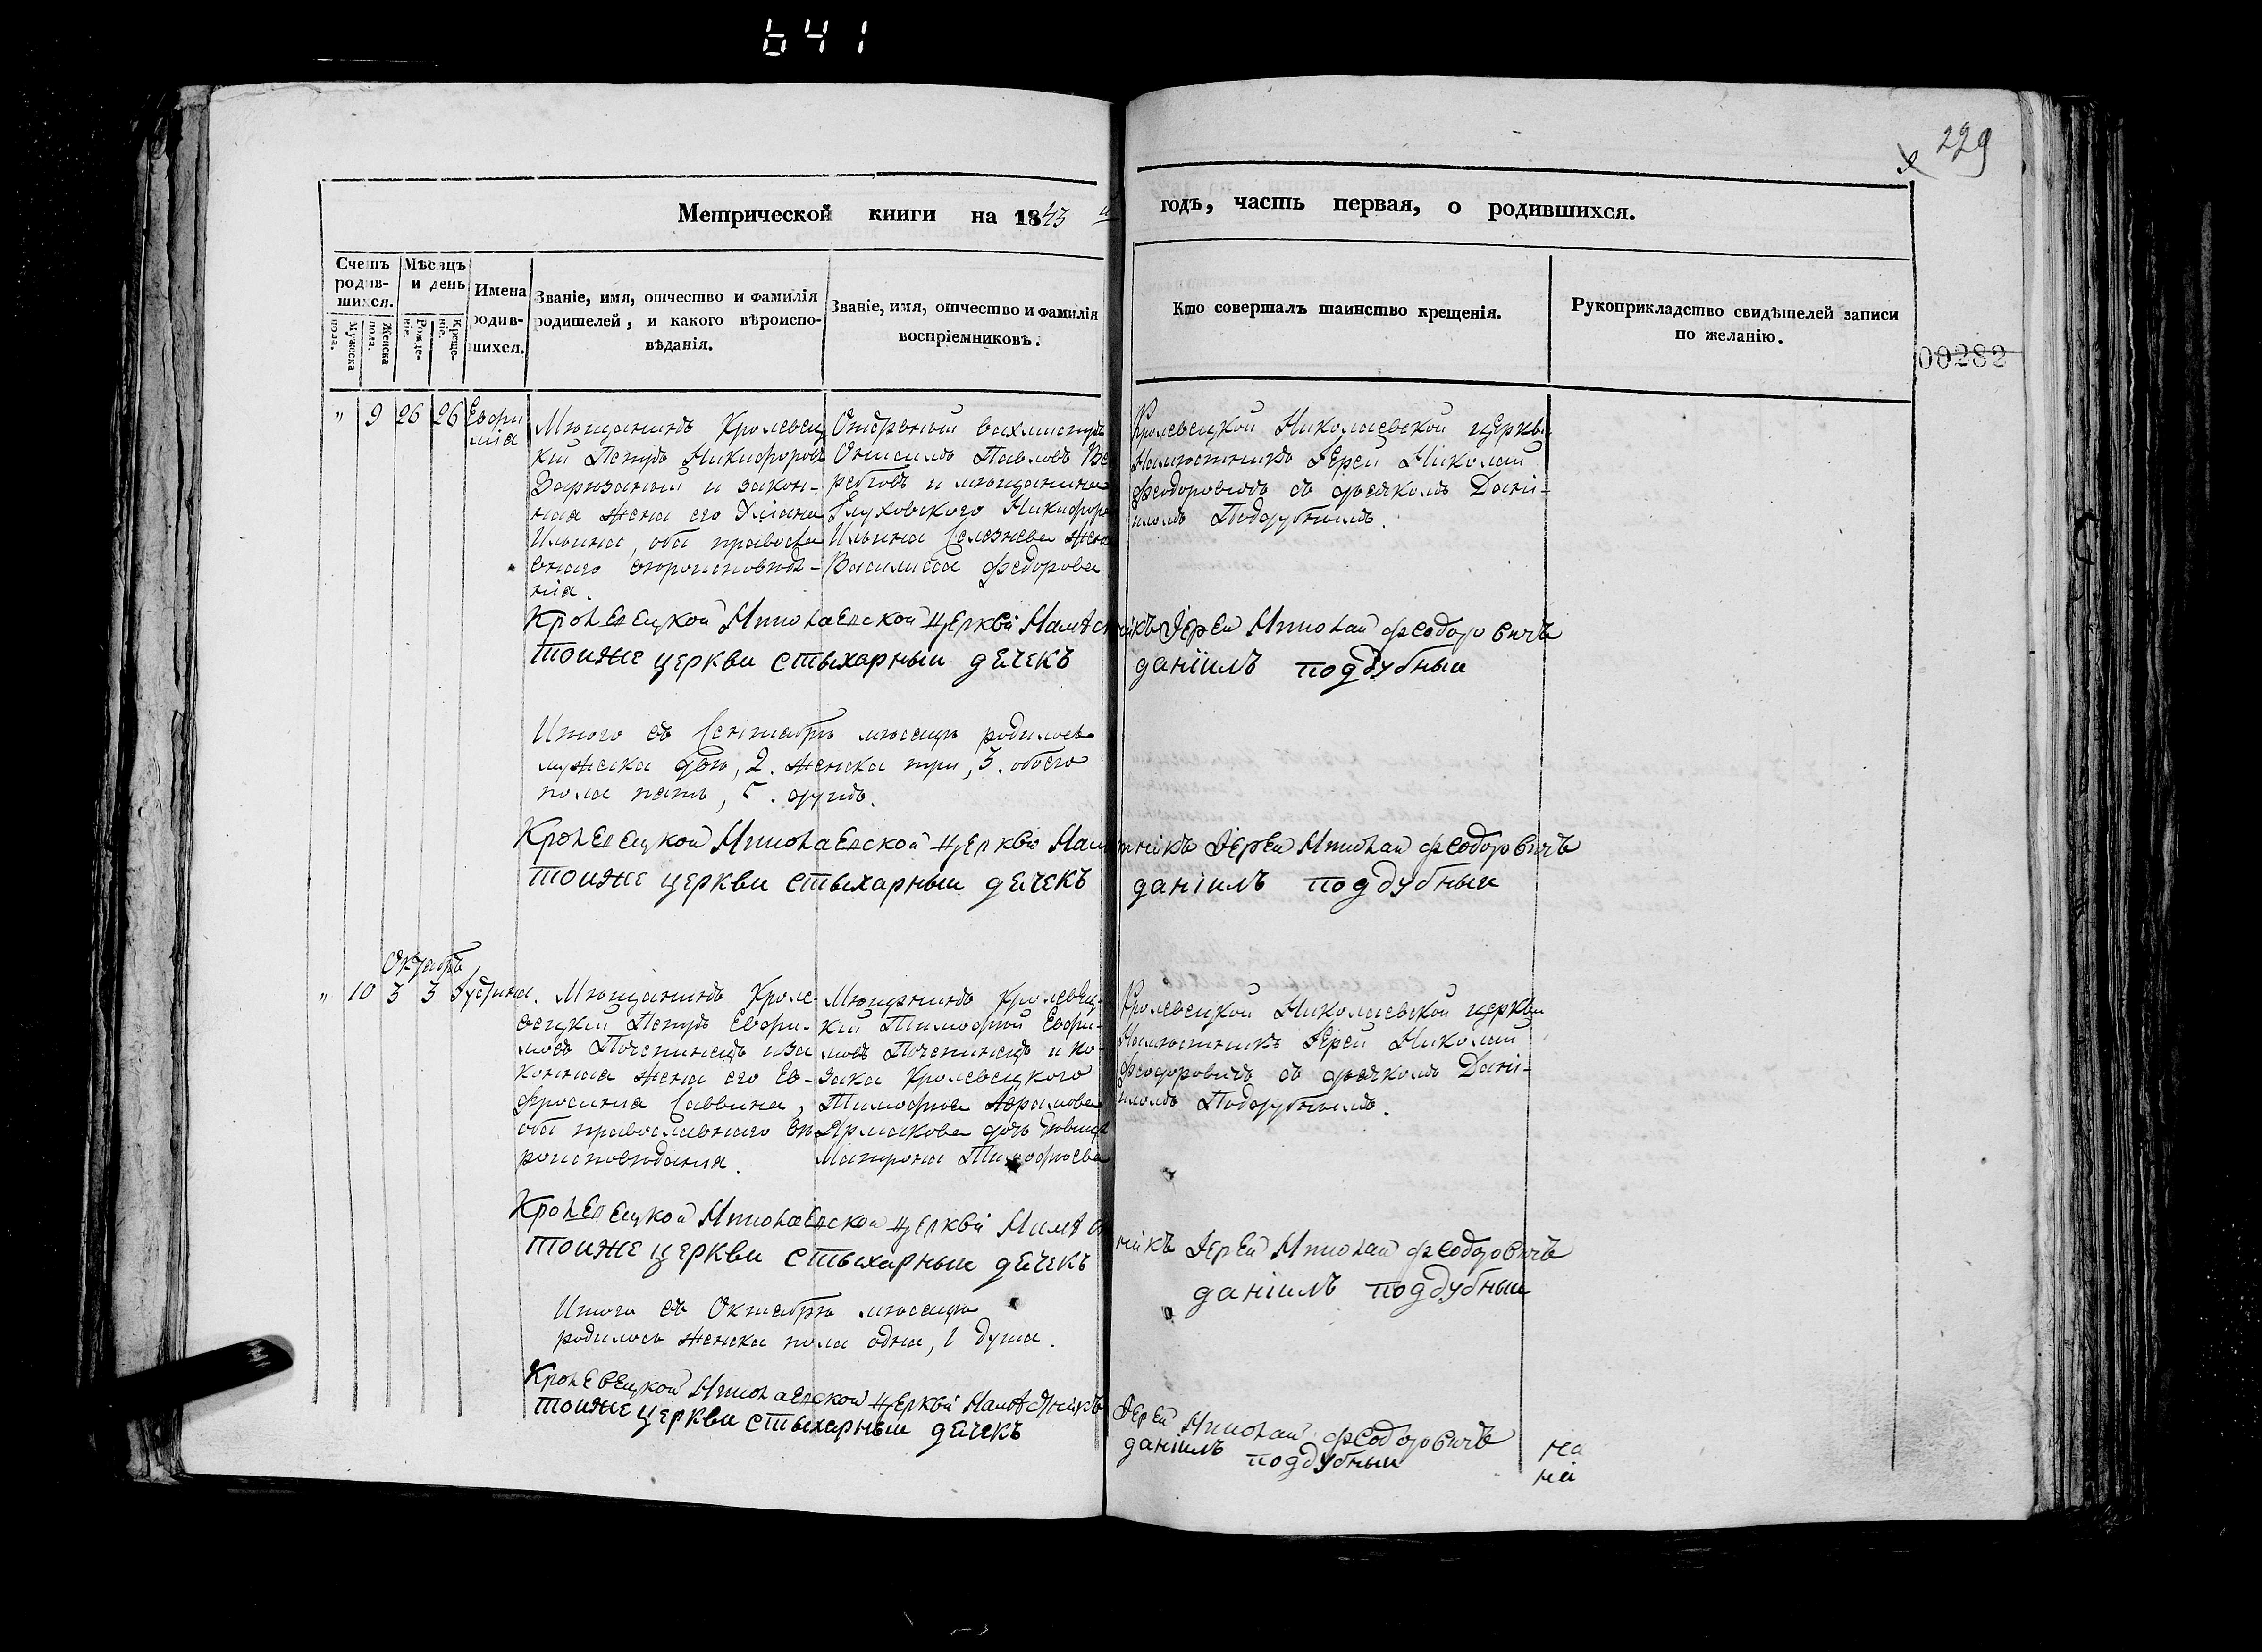 641
229
Метрической книги на 1843 й годъ, часть первая, о родившихся.
Счетъ родив-шихся.
Мужеска пола.
Женска пола.
Мѣсяцъ и день
Рожде-нія.
Креще-нія.
Имена родив-шихся.
Званіе, имя, отчество и фамилія
родителей, и какого вѣроиспо-
вѣданія.
Званіе, имя, отчество и фамилія
воспріемниковъ.
Кто совершалъ таинство крещенія.
Рукоприкладство свидѣтелей записи
по желанію.
00282
" 9 26 26
Евфи
мія
Мѣщанинъ Кролевец
кій Петръ Никифоровъ
и закон-
ная жена его
Ильина, оба правосла
внаго вѣроисповѣда-
нія.
вахмистръ
Онисимъ Павловъ
и мѣщанина
Глуховского Никифора
Ильина Селезнева жена
Василисса Федорова
Кролевецкой Николаевской церкви
Намѣстникъ Іерей Николай
Феодоровичъ съ дьячкомъ Дані-
иломъ Поддубнымъ.
Кролевецкой Николаевской церкви Намѣстникъ Іерей Николай Феодоровичъ
тоиже церкви стыхарный дячекъ даніилъ поддубный
Итого въ Сентябрѣ мѣсяцѣ родилось
мужеска два, 2. женска три, 3. обоего
пола пять, 5. душъ.
Кролевецкой Николаевской церкви Намѣстникъ Іерей Николай Феодоровичъ
тоиже церкви стыхарный дячекъ даніилъ поддубный
Октябрь
" 10 3 3 Іустина.
Мѣщанинъ Кроле-
вецкій Петръ Евфи-
мовъ Почепинецъ и за
конная жена его Ев-
фросинія Саввина,
оба православнаго вѣ
роисповѣданія.
Мѣщанинъ Кролевец-
кій Тимофей Евфи-
мовъ Почепинецъ и ко-
зака Кролевецкого
Тимофея Аврамова
Ярмакова дочь дѣвица
Матрона Тимофѣева
Кролевецкой Николаевской церкви
Намѣстникъ Іерей Николай
Феодоровичъ съ дьячкомъ Дані-
иломъ Поддубнымъ.
Кролевецкой Николаевской церкви Намѣстникъ Іерей Николай Феодоровичъ
тоиже церкви стыхарный дячекъ даніилъ поддубный
Итого въ Октябрѣ мѣсяцѣ
родилось женска пола одна, 1 душа.
Кролевецкой Николаевской церкви Намѣстникъ Іерей Николай Феодоровичъ
тоиже церкви стыхарный дячекъ даніилъ поддубный